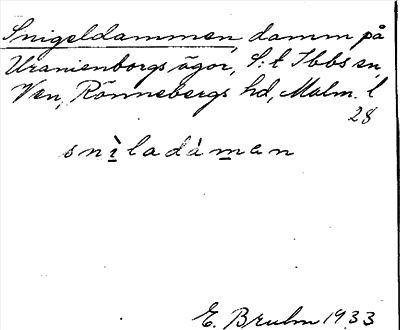 Snigeldammen, damm på
Uranienborgs ägor, S:t Ibbs sn,
Ven, Rönnebergs hd, Malm. l
28
snìladàmen
E. Bruhn 1933